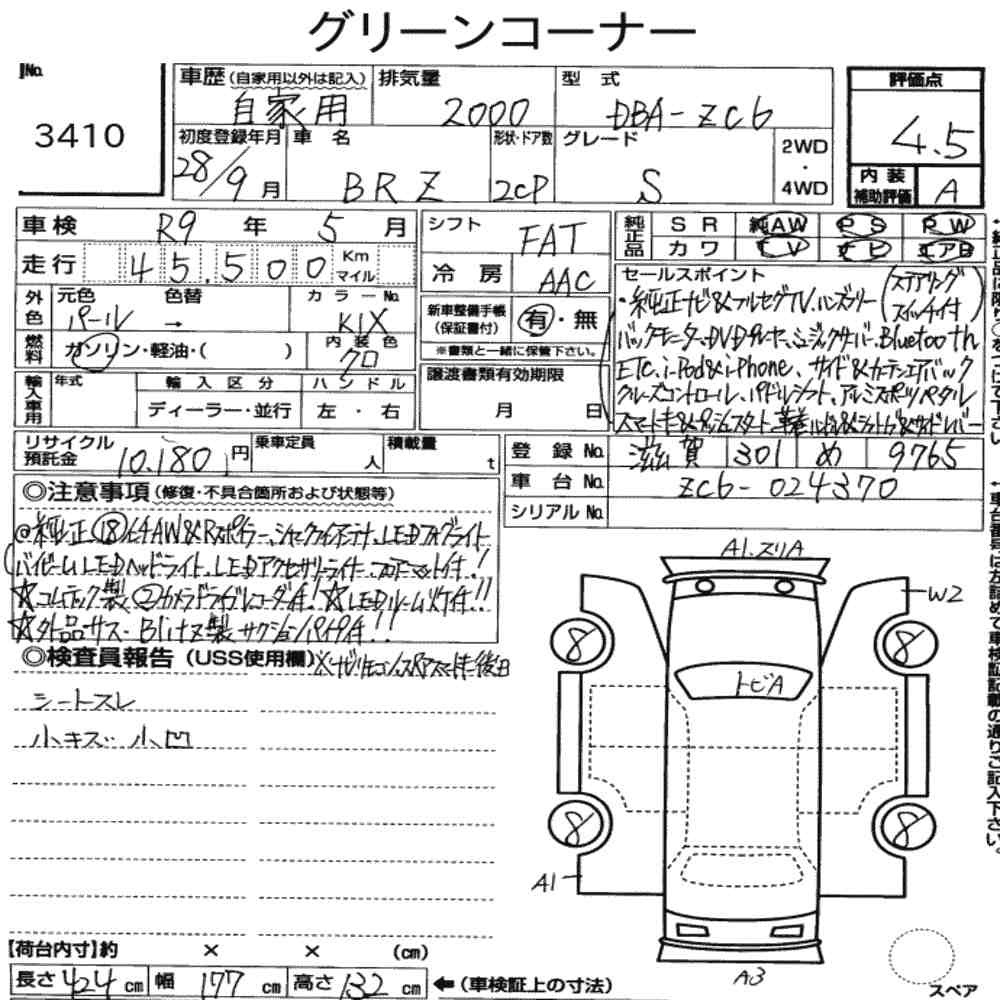 グリーンコーナー
No.
3410
車歴 (自家用以外は記入) 自家用
排気量 2000
型式 DBA-ZC6
評価点 4.5
内装補助評価 A
初度登録年月 28/9月
車名 BRZ
形状・ドア数 2CP
グレード S
2WD・4WD
車検 R9年 5月
走行 45.500 Km マイル
外色 元色 パール 色替 → カラーNo. K1X
燃料 ガソリン・軽油・( )
内装色 クロ
輸入車用 年式 輸入区分 ディーラー・並行 ハンドル 左・右
シフト FAT
冷房 AAC
新車整備手帳(保証書付) 有・無
※書類と一緒に保管下さい。
譲渡書類有効期限
月 日
純正品 SR 純AW PS PW
カワ TV ナビ エアB
セールスポイント (ステアリングスイッチ付)
・純正ナビ&フルセグTV.ハンズフリー
バックモニター.DVDプレーヤー.ミュージックサーバー.Bluetooth
ETC.i-Pod&i-Phone、サイド&カーテンエアバック
クルーズコントロール、パドルシフト、アルミスポーツペダル
スマートキー&プッシュスタート.革巻ハンドル&シフトノブ&サイドレバー
リサイクル預託金 10.180円
乗車定員 人
積載量 t
登録No. 滋賀 301 め 9765
車台No. ZC6-024370
シリアルNo.
◎注意事項 (修復・不具合箇所および状態等)
◎純正⑱インチAW&Rスポイラー、シャークフィンアンテナ、LEDフォグライト
ハイビームLEDヘッドライト、LEDアクセサリーライナー、フロアマット付!
☆コムテック製②カメラドライブレコーダー付! ☆LEDルーム灯付!!
☆外品サス・Blitz製サクションパイプ付!!
◎検査員報告 (USS使用欄) ※ナビリモコン、スペアスマートキー後日
シートスレ
小キズ 小凹
A1.スリA
W2
8
8
トビA
8
8
A1
A3
スペア
【荷台内寸】約 × × (cm)
長さ 424 cm 幅 177 cm 高さ 132 cm ←(車検証上の寸法)